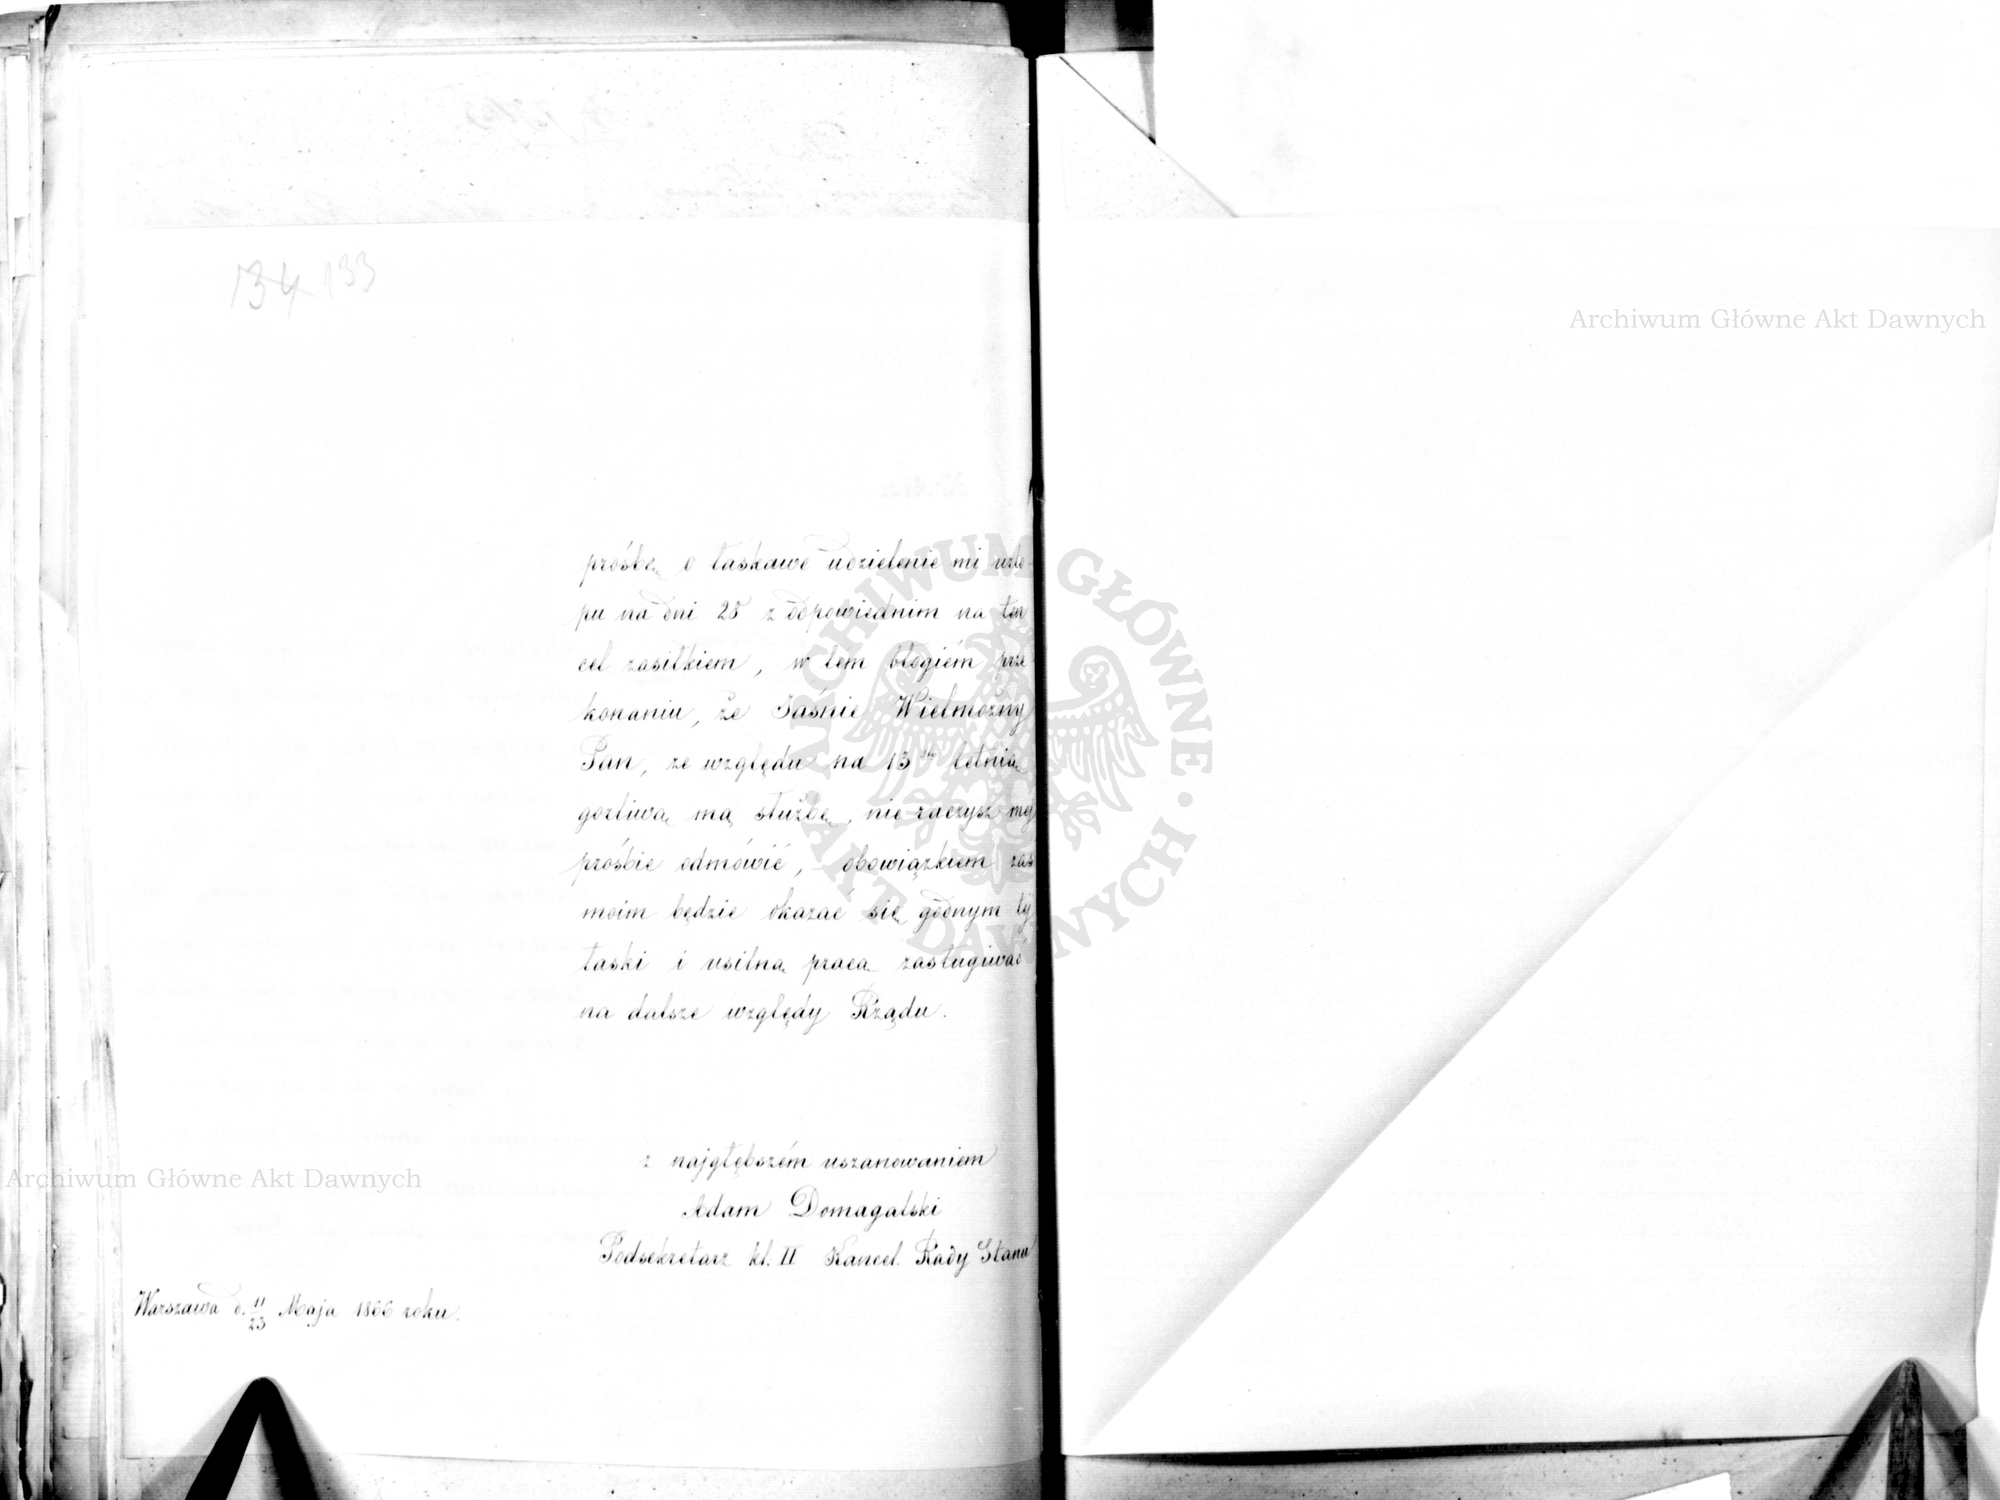 134 133
prośbą o łaskawe udzielenie mi urlo-
pu na dni 28 z odpowiednim na ten
cel zasiłkiem, w tem błogiém prze
konaniu, że Jaśnie Wielmożny
Pan, ze względu na 13 letnią
gorliwą mą służbę, nie raczysz mej
prośbie odmówić, – obowiązkiem zaś
moim będzie okazać się godnym tej
łaski i usilną pracą zasługiwać
na dalsze względy Rządu.
z najgłębszém uszanowaniem
Adam Domagalski
Podsekretarz kl. II Kancel. Rady Stanu
Warszawa d. 11/23 Maja 1866 roku.
Archiwum Główne Akt Dawnych
Archiwum Główne Akt Dawnych
ARCHIWUM GŁÓWNE AKT DAWNYCH